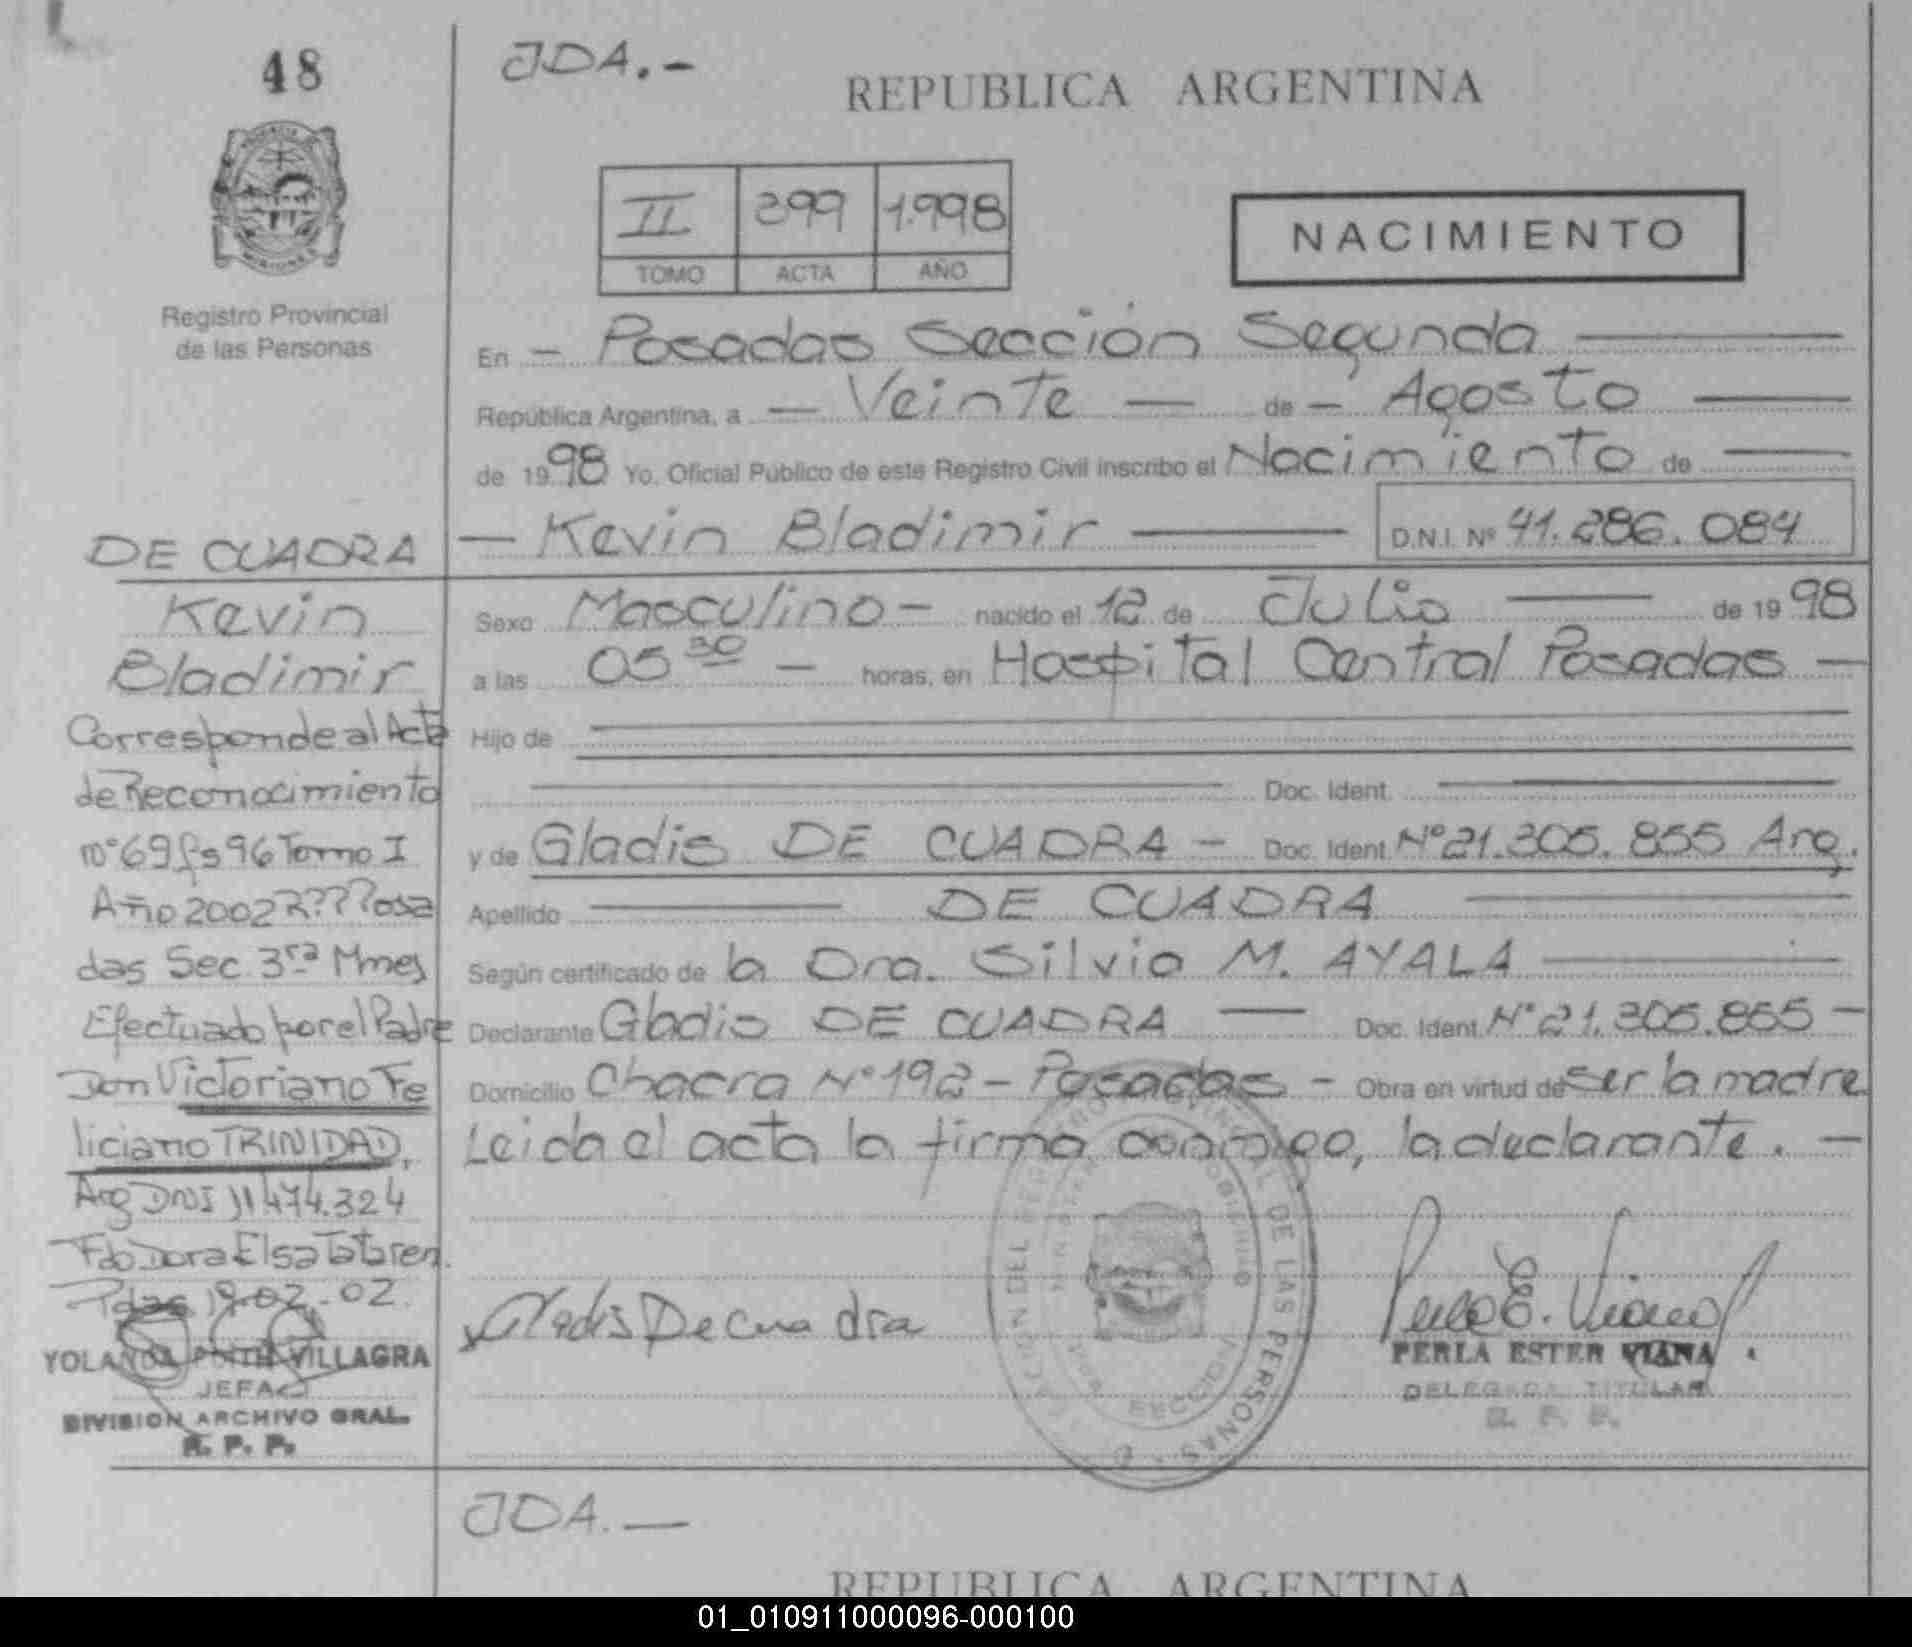 48
JDA.-
REPUBLICA ARGENTINA
II 399 1.998
TOMO ACTA AÑO
NACIMIENTO
Registro Provincial
de las Personas
En - Posadas Sección Segunda
República Argentina, a - Veinte - de - Agosto
de 1998 Yo, Oficial Público de este Registro Civil inscribo el Nacimiento de
- Kevin Bladimir D.N.I. Nº 41.286.084
DE CUADRA
Kevin
Bladimir
Corresponde al Acta
de Reconocimiento
nº 69 fs 96 Tomo I
Año 2002 R???Posa
das Sec. 3ra Mnes
Efectuado por el Padre
Don Victoriano Fe
liciano TRINIDAD,
Arg DNI 11474.324
Fdo Dora Elsa Tataren.
Pdas 19-02-02.
YOLANDA EDITH VILLAGRA
JEFA
DIVISION ARCHIVO GRAL.
R. P. P.
Sexo Masculino - nacido el 12 de Julio de 1998
a las 05 30 - horas, en Hospital Central Posadas -
Hijo de
Doc. Ident.
y de Gladis DE CUADRA - Doc. Ident. Nº 21.305.855 Arg.
Apellido DE CUADRA
Según certificado de la Dra. Silvia M. AYALA
Declarante Gladis DE CUADRA - Doc. Ident. Nº 21.305.855 -
Domicilio Chacra Nº 192 - Posadas - Obra en virtud de ser la madre
Leida el acta la firma conmigo, la declarante. -
Gladis De cuadra
Perla E. Viana
PERLA ESTER VIANA
DELEGADA TITULAR
R. P. P.
DEL REGISTRO PROVINCIAL DE LAS PERSONAS
SECCION
JDA.-
REPUBLICA ARGENTINA
01_010911000096-000100